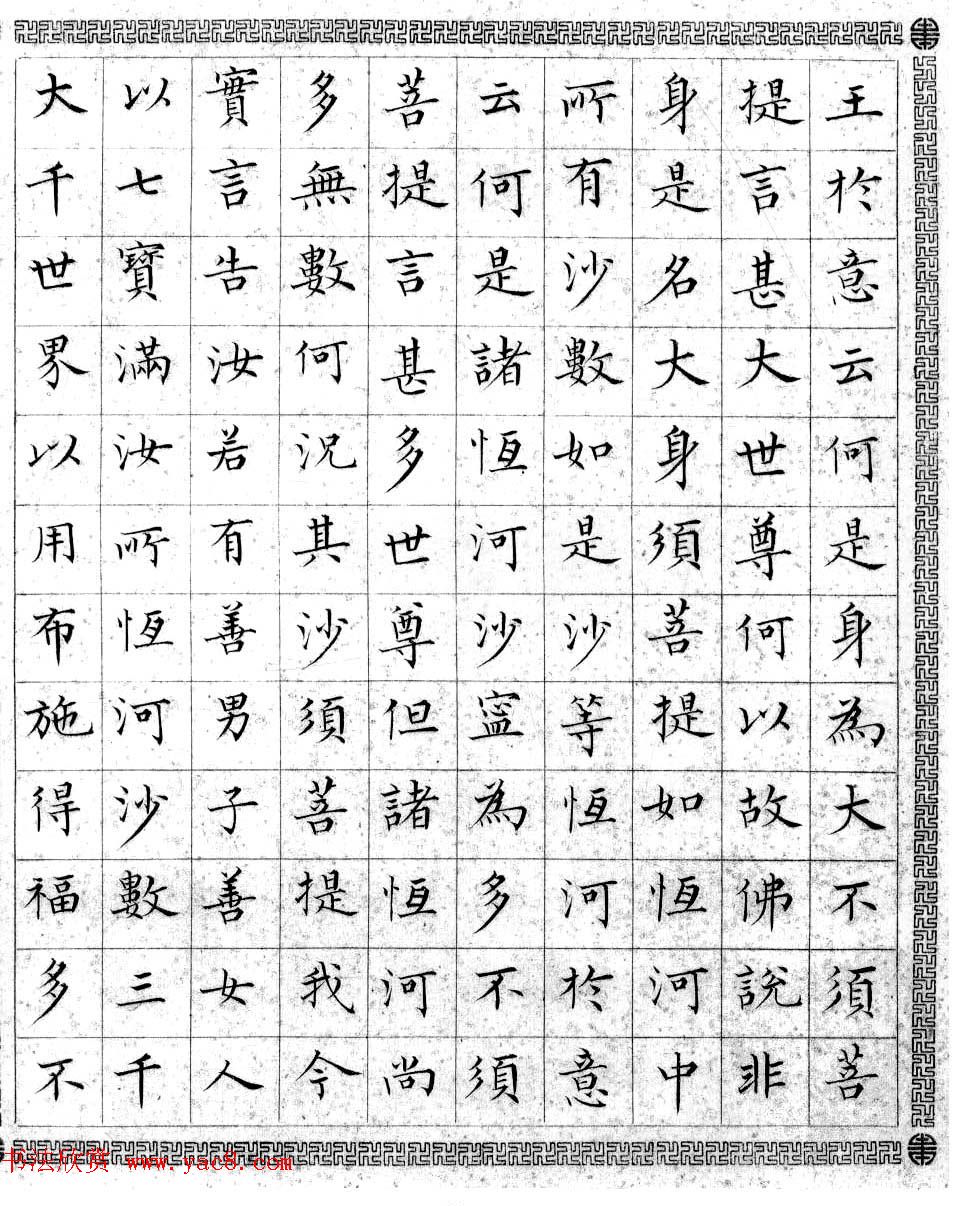 王於意云何是身為大不須菩
提言甚大世尊何以故佛說非
身是名大身須菩提如恆河中
所有沙數如是沙等恆河於意
云何是諸恆河沙寧為多不須
菩提言甚多世尊但諸恆河尚
多無數何況其沙須菩提我今
實言告汝若有善男子善女人
以七寶滿汝所恆河沙數三千
大千世界以用布施得福多不
书法欣赏 www.yac8.com